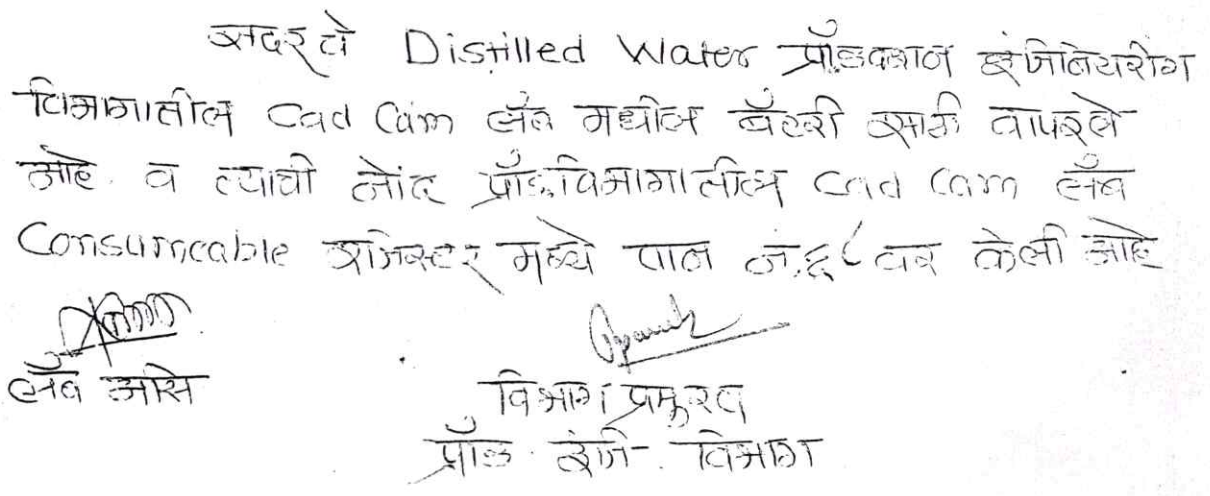 सदरचे Distilled Water प्रॉडक्शन इंजिनियरींग
विभागातील Cad Cam लॅब मधील बॅटरी साठी वापरले
आहे. व त्याची नोंद प्रॉड.विभागातील Cad Cam लॅब
Consumeable रजिस्टर मध्ये पान नं. ६८ वर केली आहे
लॅब असि
विभाग प्रमुख
प्रॉड. इंजि. विभाग